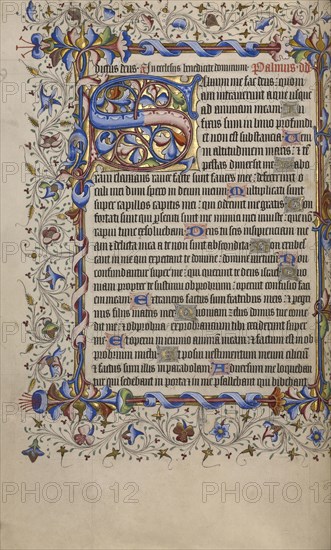 dictus deus : In ecclesiis benedicite dominum Psalmus dd
Salvum me fac deus : quoni
am intraverunt aque usque
ad animam meam In
fixus sum in limo profundi
et non est substantia Veni
in altitudinem maris : et tem
pestas dimersit me Labo
ravi clamans rauce facte sunt fauces mee : defecerunt o
culi mei dum spero in deum meum Multiplicati sunt
super capillos capitis mei : qui oderunt me gratis Con
fortati sunt qui persecuti sunt me inimici mei iniuste : que non
rapui tunc exsolvebam Deus tu scis insipienciam me
am : et delicta mea a te non sunt abscondita Non erubes
cant in me qui expectant te domine : domine virtutum Non
confundantur super me : qui querunt te deus israel Quo
niam propter te sustinui obprobrium : operuit confusio faci
em meam Extraneus factus sum fratribus meis : et pere
grinus filiis matris mee Quoniam zelus domus tue come
dit me : et obprobria exprobrantium tibi ceciderunt super
me Et operui in ieiunio animam meam : et factum est in ob
probrium michi Et posui vestimentum meum cilicium
et factus sum illis in parabolam Adversum me loqueban
tur qui sedebant in porta : et in me psallebant qui bibebant
PHOTO 12